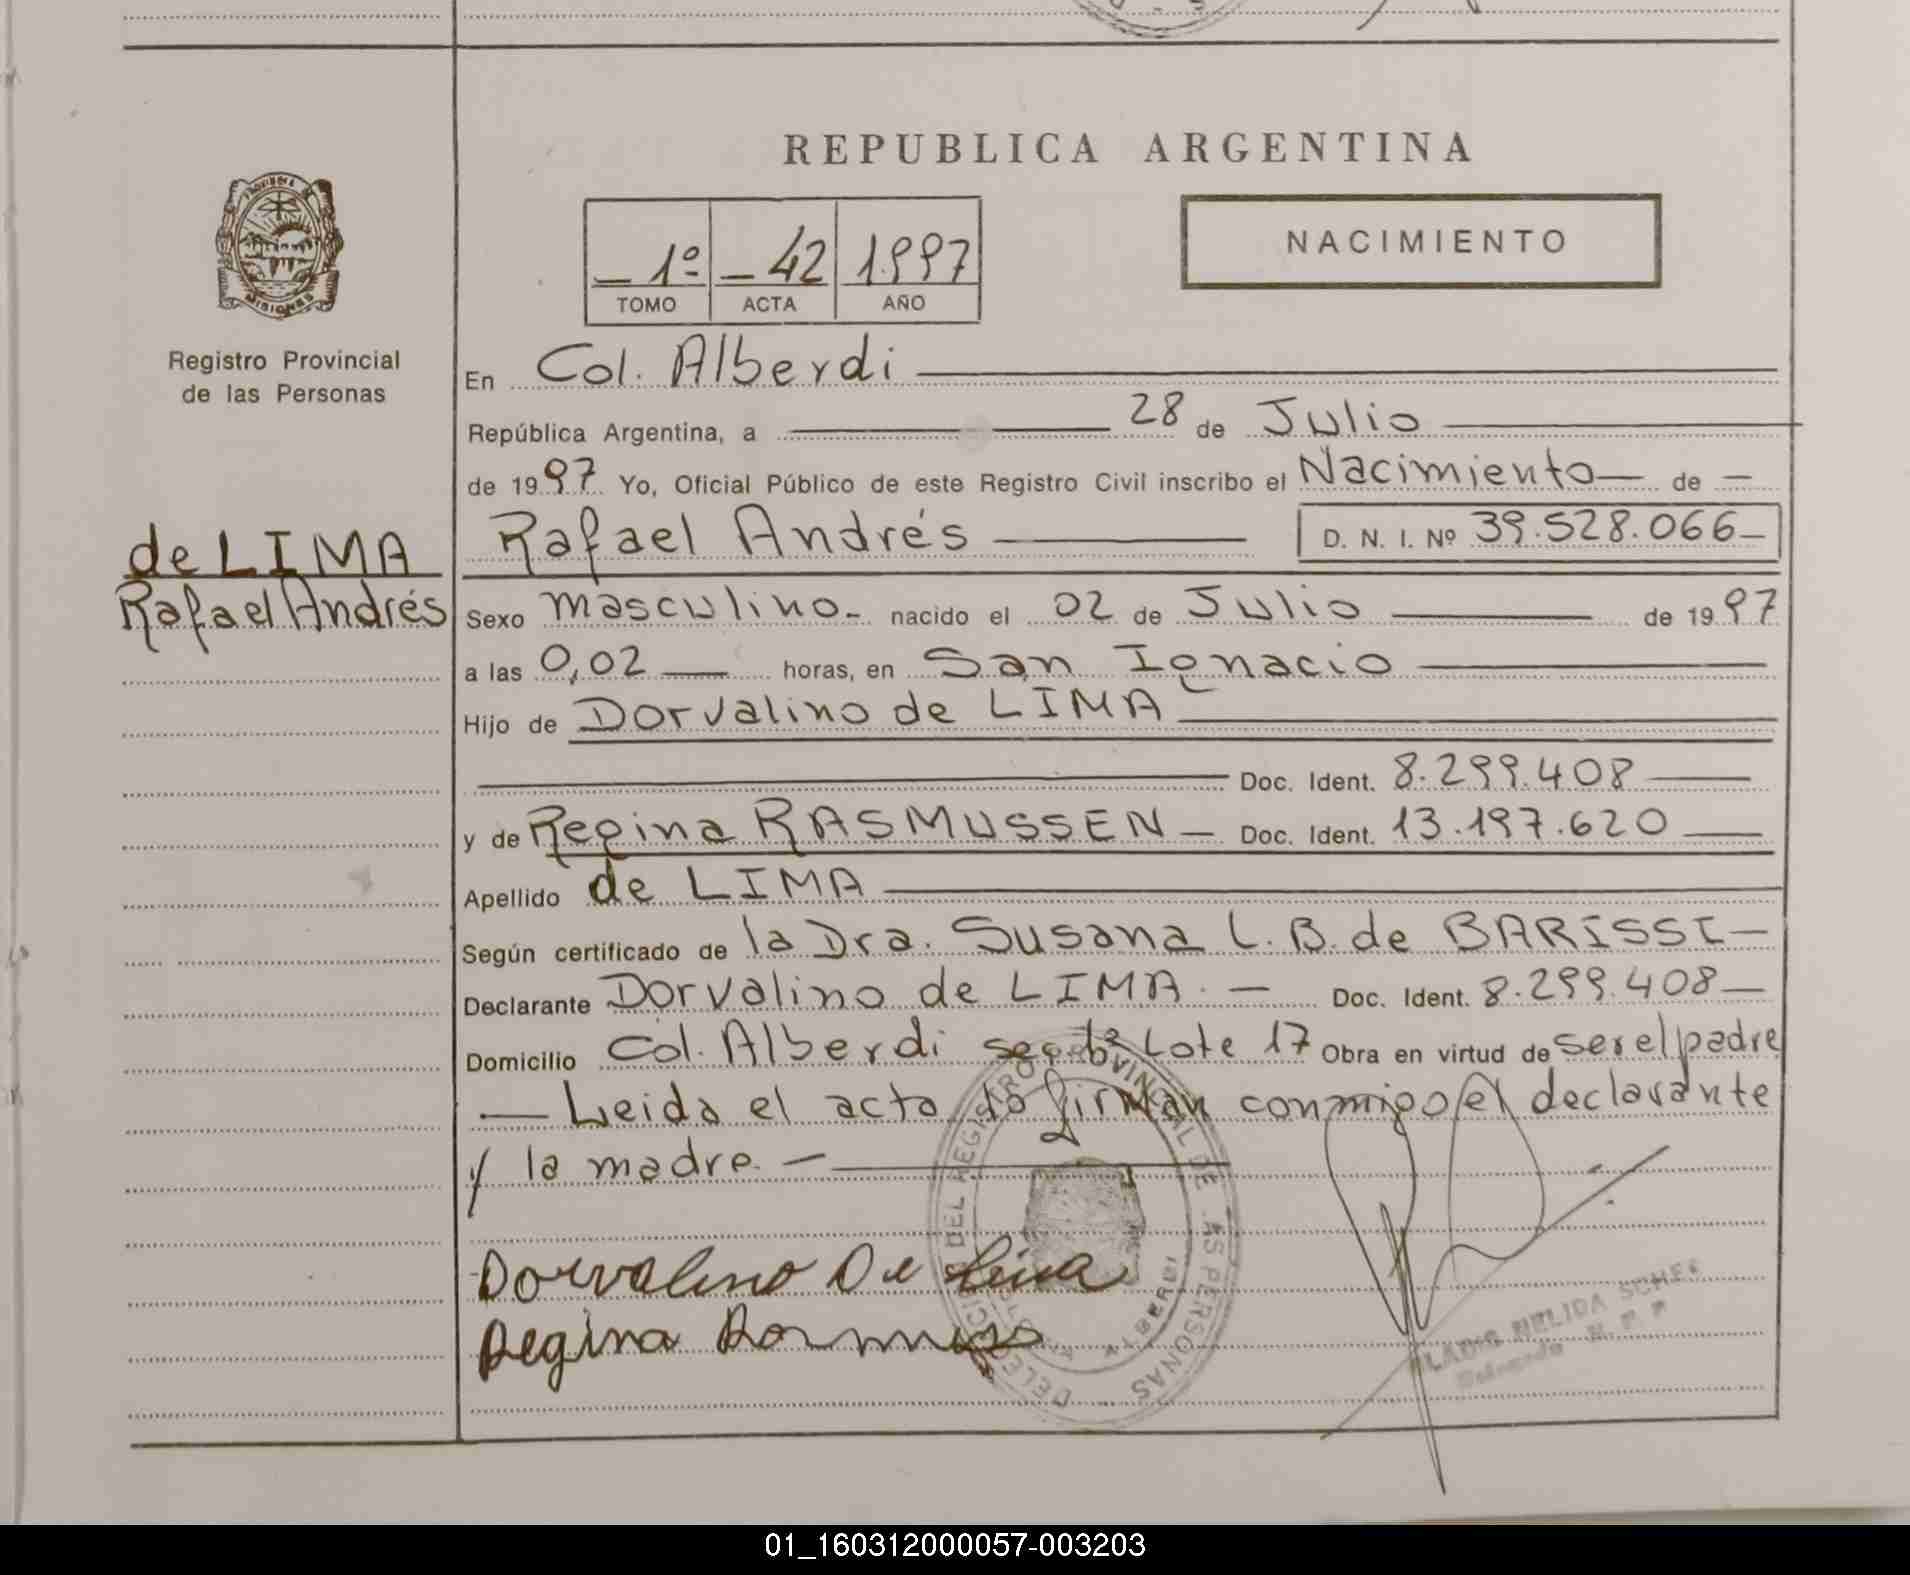 REPUBLICA ARGENTINA
PROVINCIA DE
MISIONES
1º 42 1997
TOMO ACTA AÑO
NACIMIENTO
Registro Provincial
de las Personas
de LIMA
Rafael Andrés
En Col. Alberdi
República Argentina, a 28 de Julio
de 1997 Yo, Oficial Público de este Registro Civil inscribo el Nacimiento de
Rafael Andrés D. N. I. Nº 39.528.066
Sexo masculino nacido el 02 de Julio de 1997
a las 0,02 horas, en San Ignacio
Hijo de Dorvalino de LIMA
Doc. Ident. 8.299.408
y de Regina RASMUSSEN Doc. Ident. 13.197.620
Apellido de LIMA
Según certificado de la Dra. Susana L. B. de BARISSI
Declarante Dorvalino de LIMA. Doc. Ident. 8.299.408
Domicilio Col. Alberdi Lote 17 Obra en virtud de ser el padre
Leida el acta firman conmigo el declarante
y la madre.
Dorvalino De Lima
Regina
DELEGACION DEL REGISTRO PROVINCIAL DE LAS PERSONAS
COLONIA ALBERDI
NELIDA
01_160312000057-003203